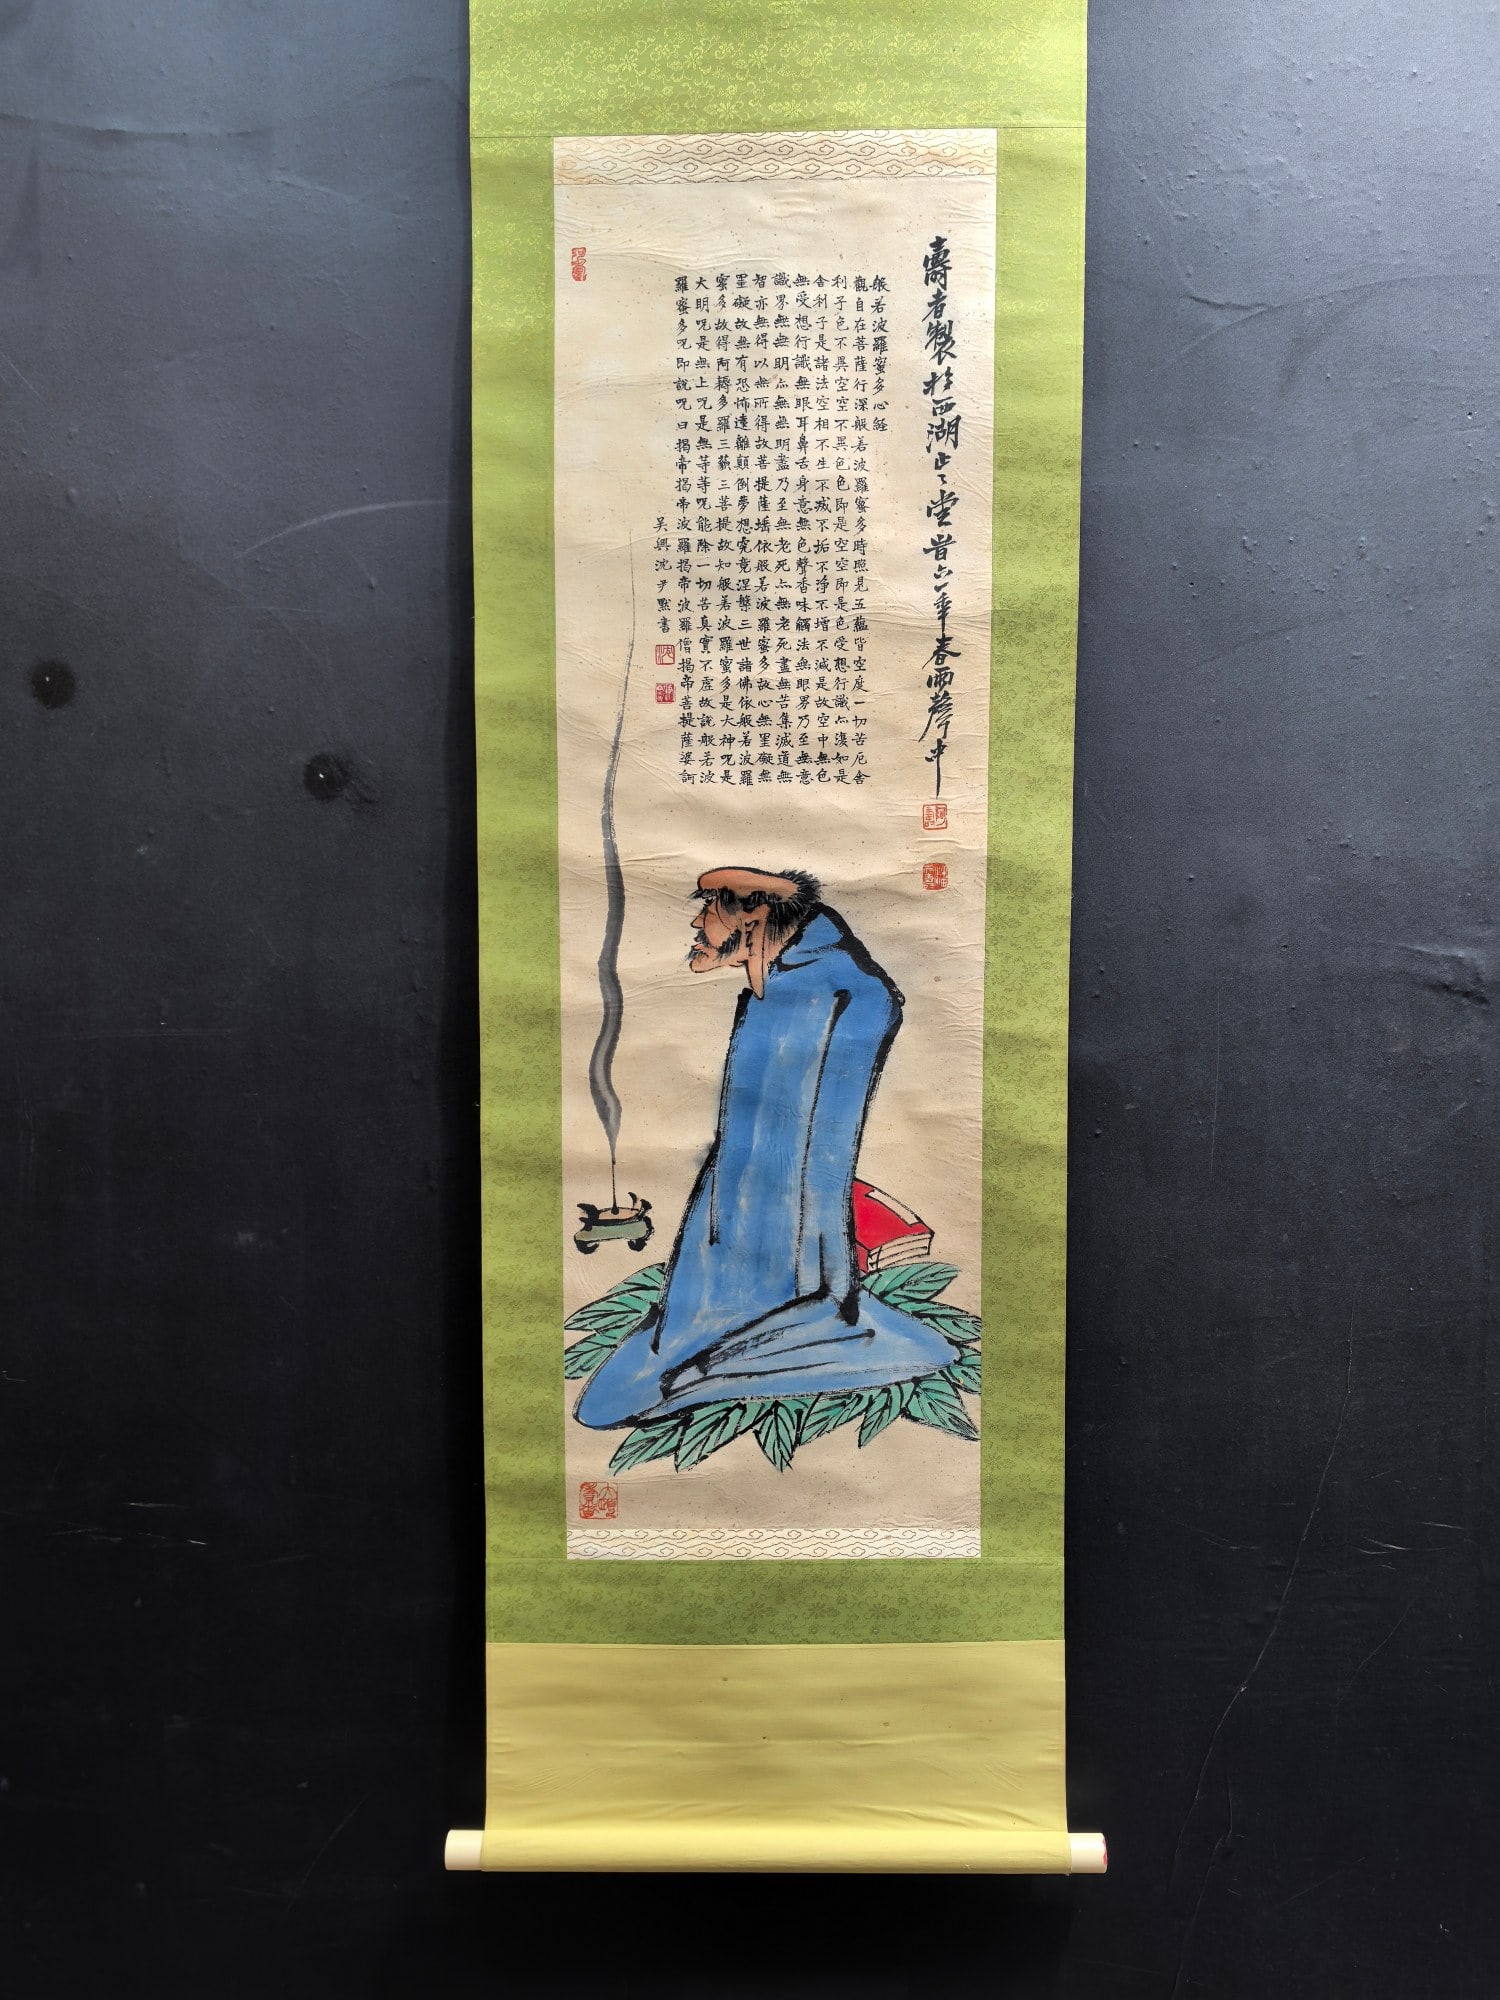 壽者製於西湖止止堂昔六一年春雨聲中
般若波羅蜜多心経
觀自在菩薩行深般若波羅蜜多時照見五蘊皆空度一切苦厄舍
利子色不異空空不異色色即是空空即是色受想行識亦復如是
舍利子是諸法空相不生不滅不垢不淨不增不減是故空中無色
無受想行識無眼耳鼻舌身意無色聲香味觸法無眼界乃至無意
識界無無明亦無無明盡乃至無老死亦無老死盡無苦集滅道無
智亦無得以無所得故菩提薩埵依般若波羅蜜多故心無罣礙無
罣礙故無有恐怖遠離顛倒夢想究竟涅槃三世諸佛依般若波羅
蜜多故得阿耨多羅三藐三菩提故知般若波羅蜜多是大神咒是
大明咒是無上咒是無等等咒能除一切苦真實不虛故說般若波
羅蜜多咒即說咒曰揭帝揭帝波羅揭帝波羅僧揭帝菩提薩婆訶
吳興沈尹默書